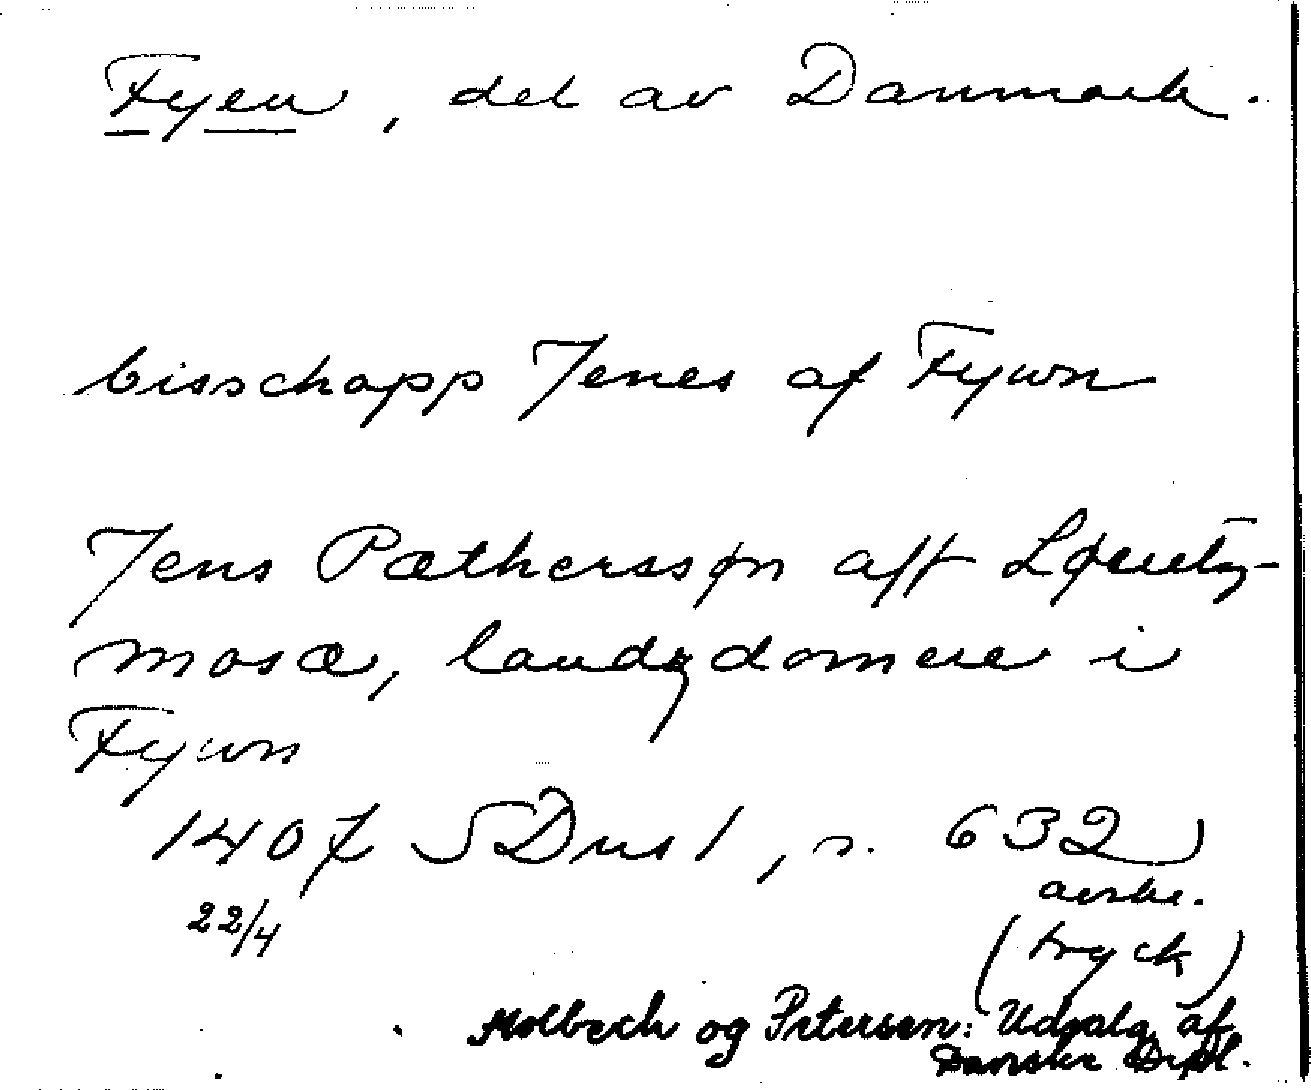 Fyen, del av Danmark.
bisschopp Jenes af Fywn
Jens Pætherssøn aff Løuetz-
mosæ, landzdomere i
Fywn
1407 SDns 1, s. 632
22/4 avskr.
(tryck)
Molbech og Petersen: Udvalg af
Danske Dipl.